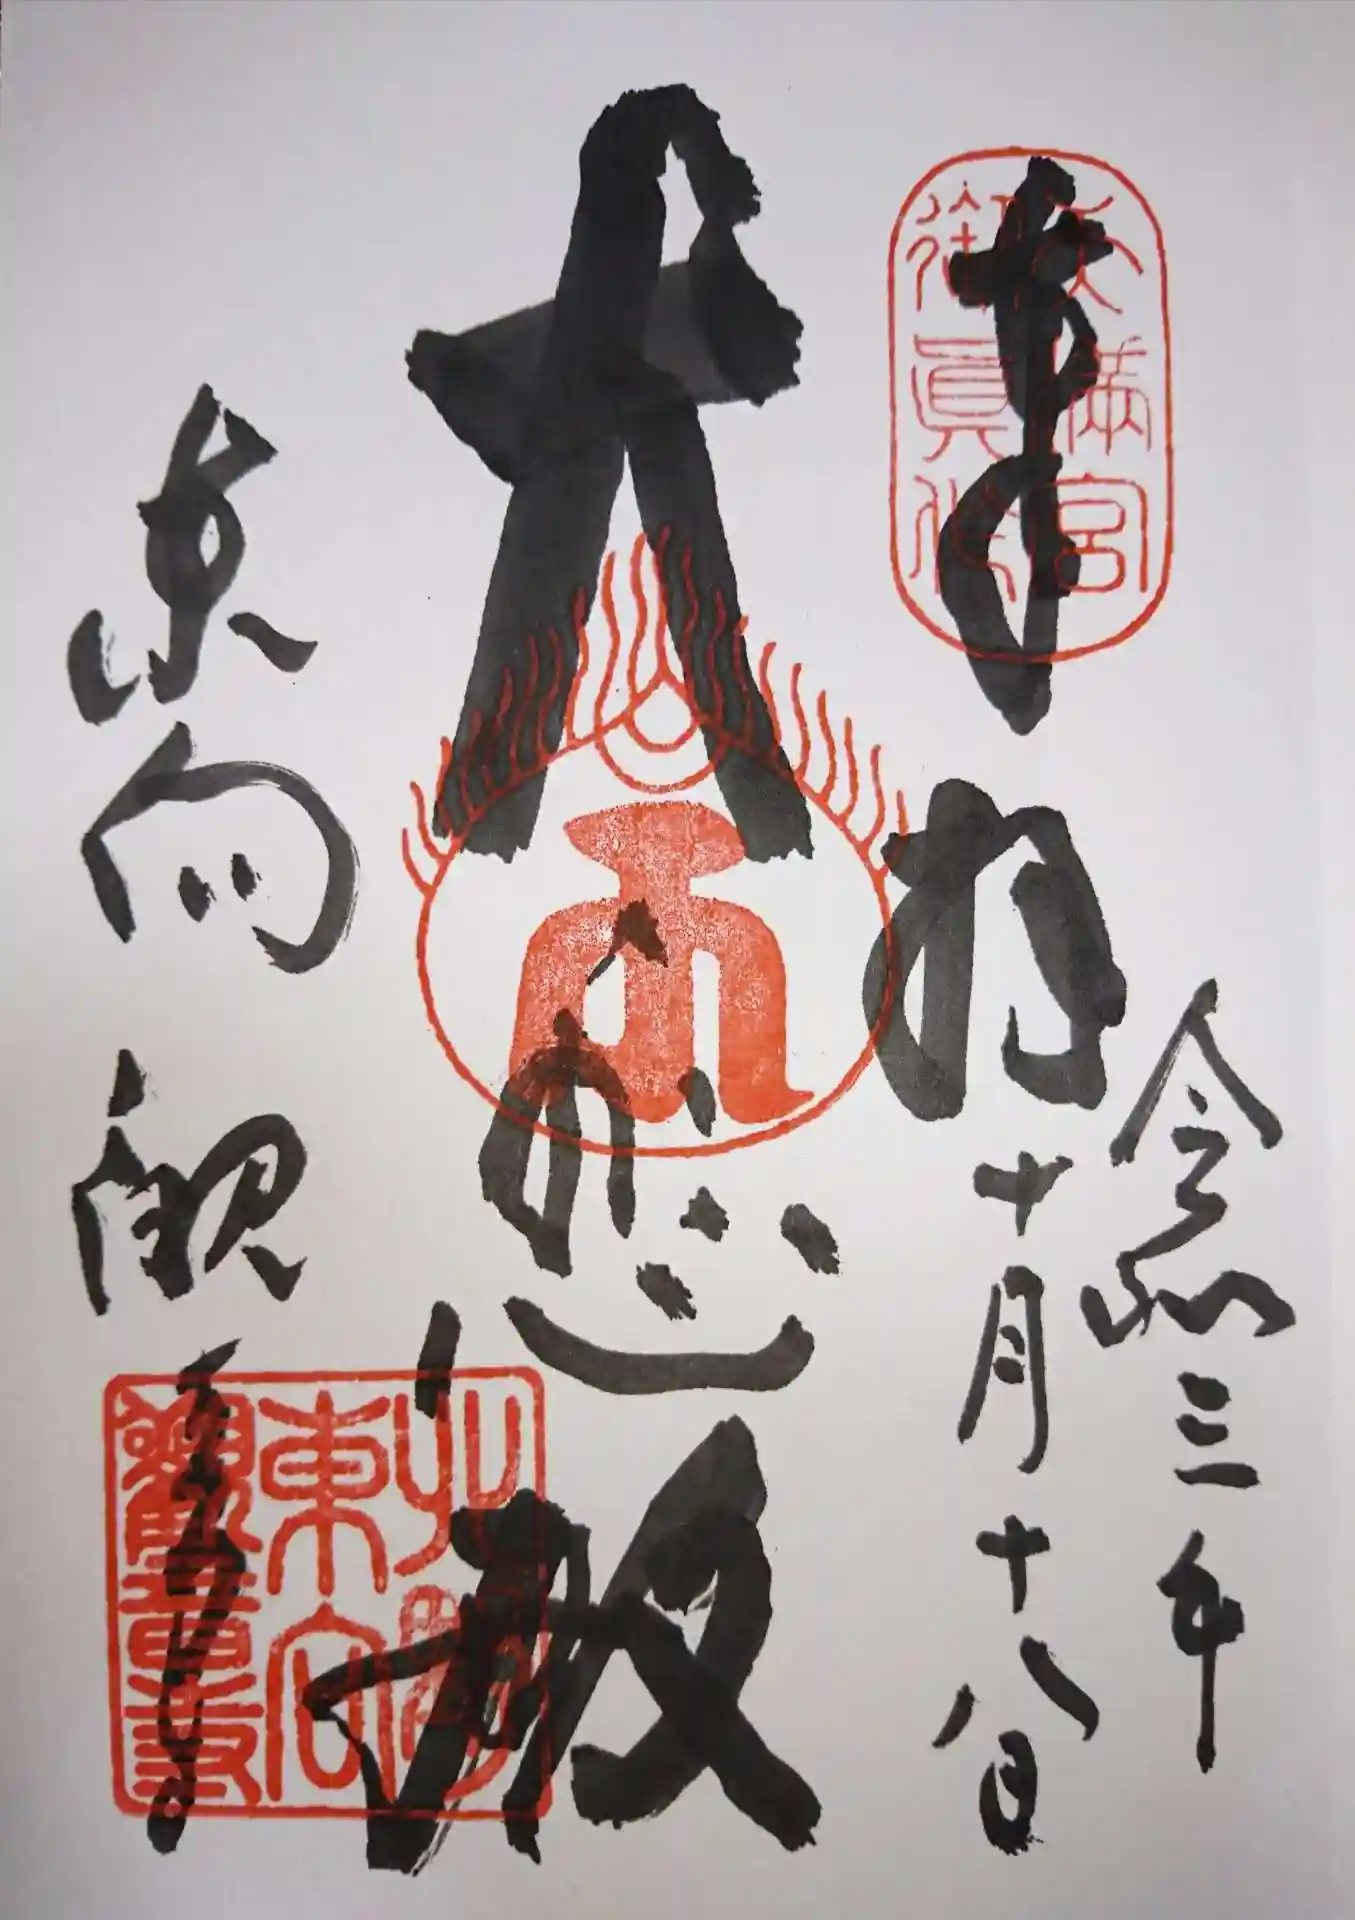 天満宮
御眞作
奉拝
令和三年
十月十八日
大悲殿
東向観音寺
北野
東向
觀音寺